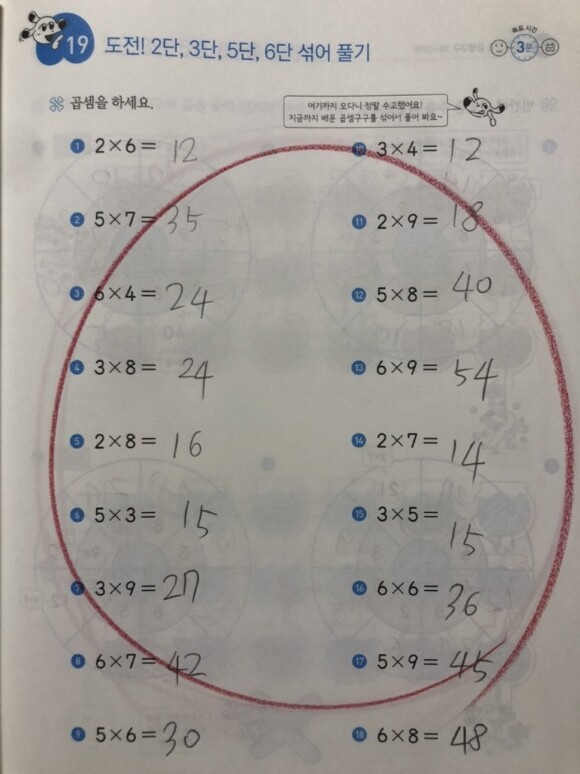 19 도전! 2단, 3단, 5단, 6단 섞어 풀기
목표 시간
3분
곱셈을 하세요.
여기까지 오다니 정말 수고했어요!
지금까지 배운 곱셈구구를 섞어서 풀어 봐요~
1 2×6= 12
2 5×7= 35
3 6×4= 24
4 3×8= 24
5 2×8= 16
6 5×3= 15
7 3×9= 27
8 6×7= 42
9 5×6= 30
10 3×4= 12
11 2×9= 18
12 5×8= 40
13 6×9= 54
14 2×7= 14
15 3×5= 15
16 6×6= 36
17 5×9= 45
18 6×8= 48